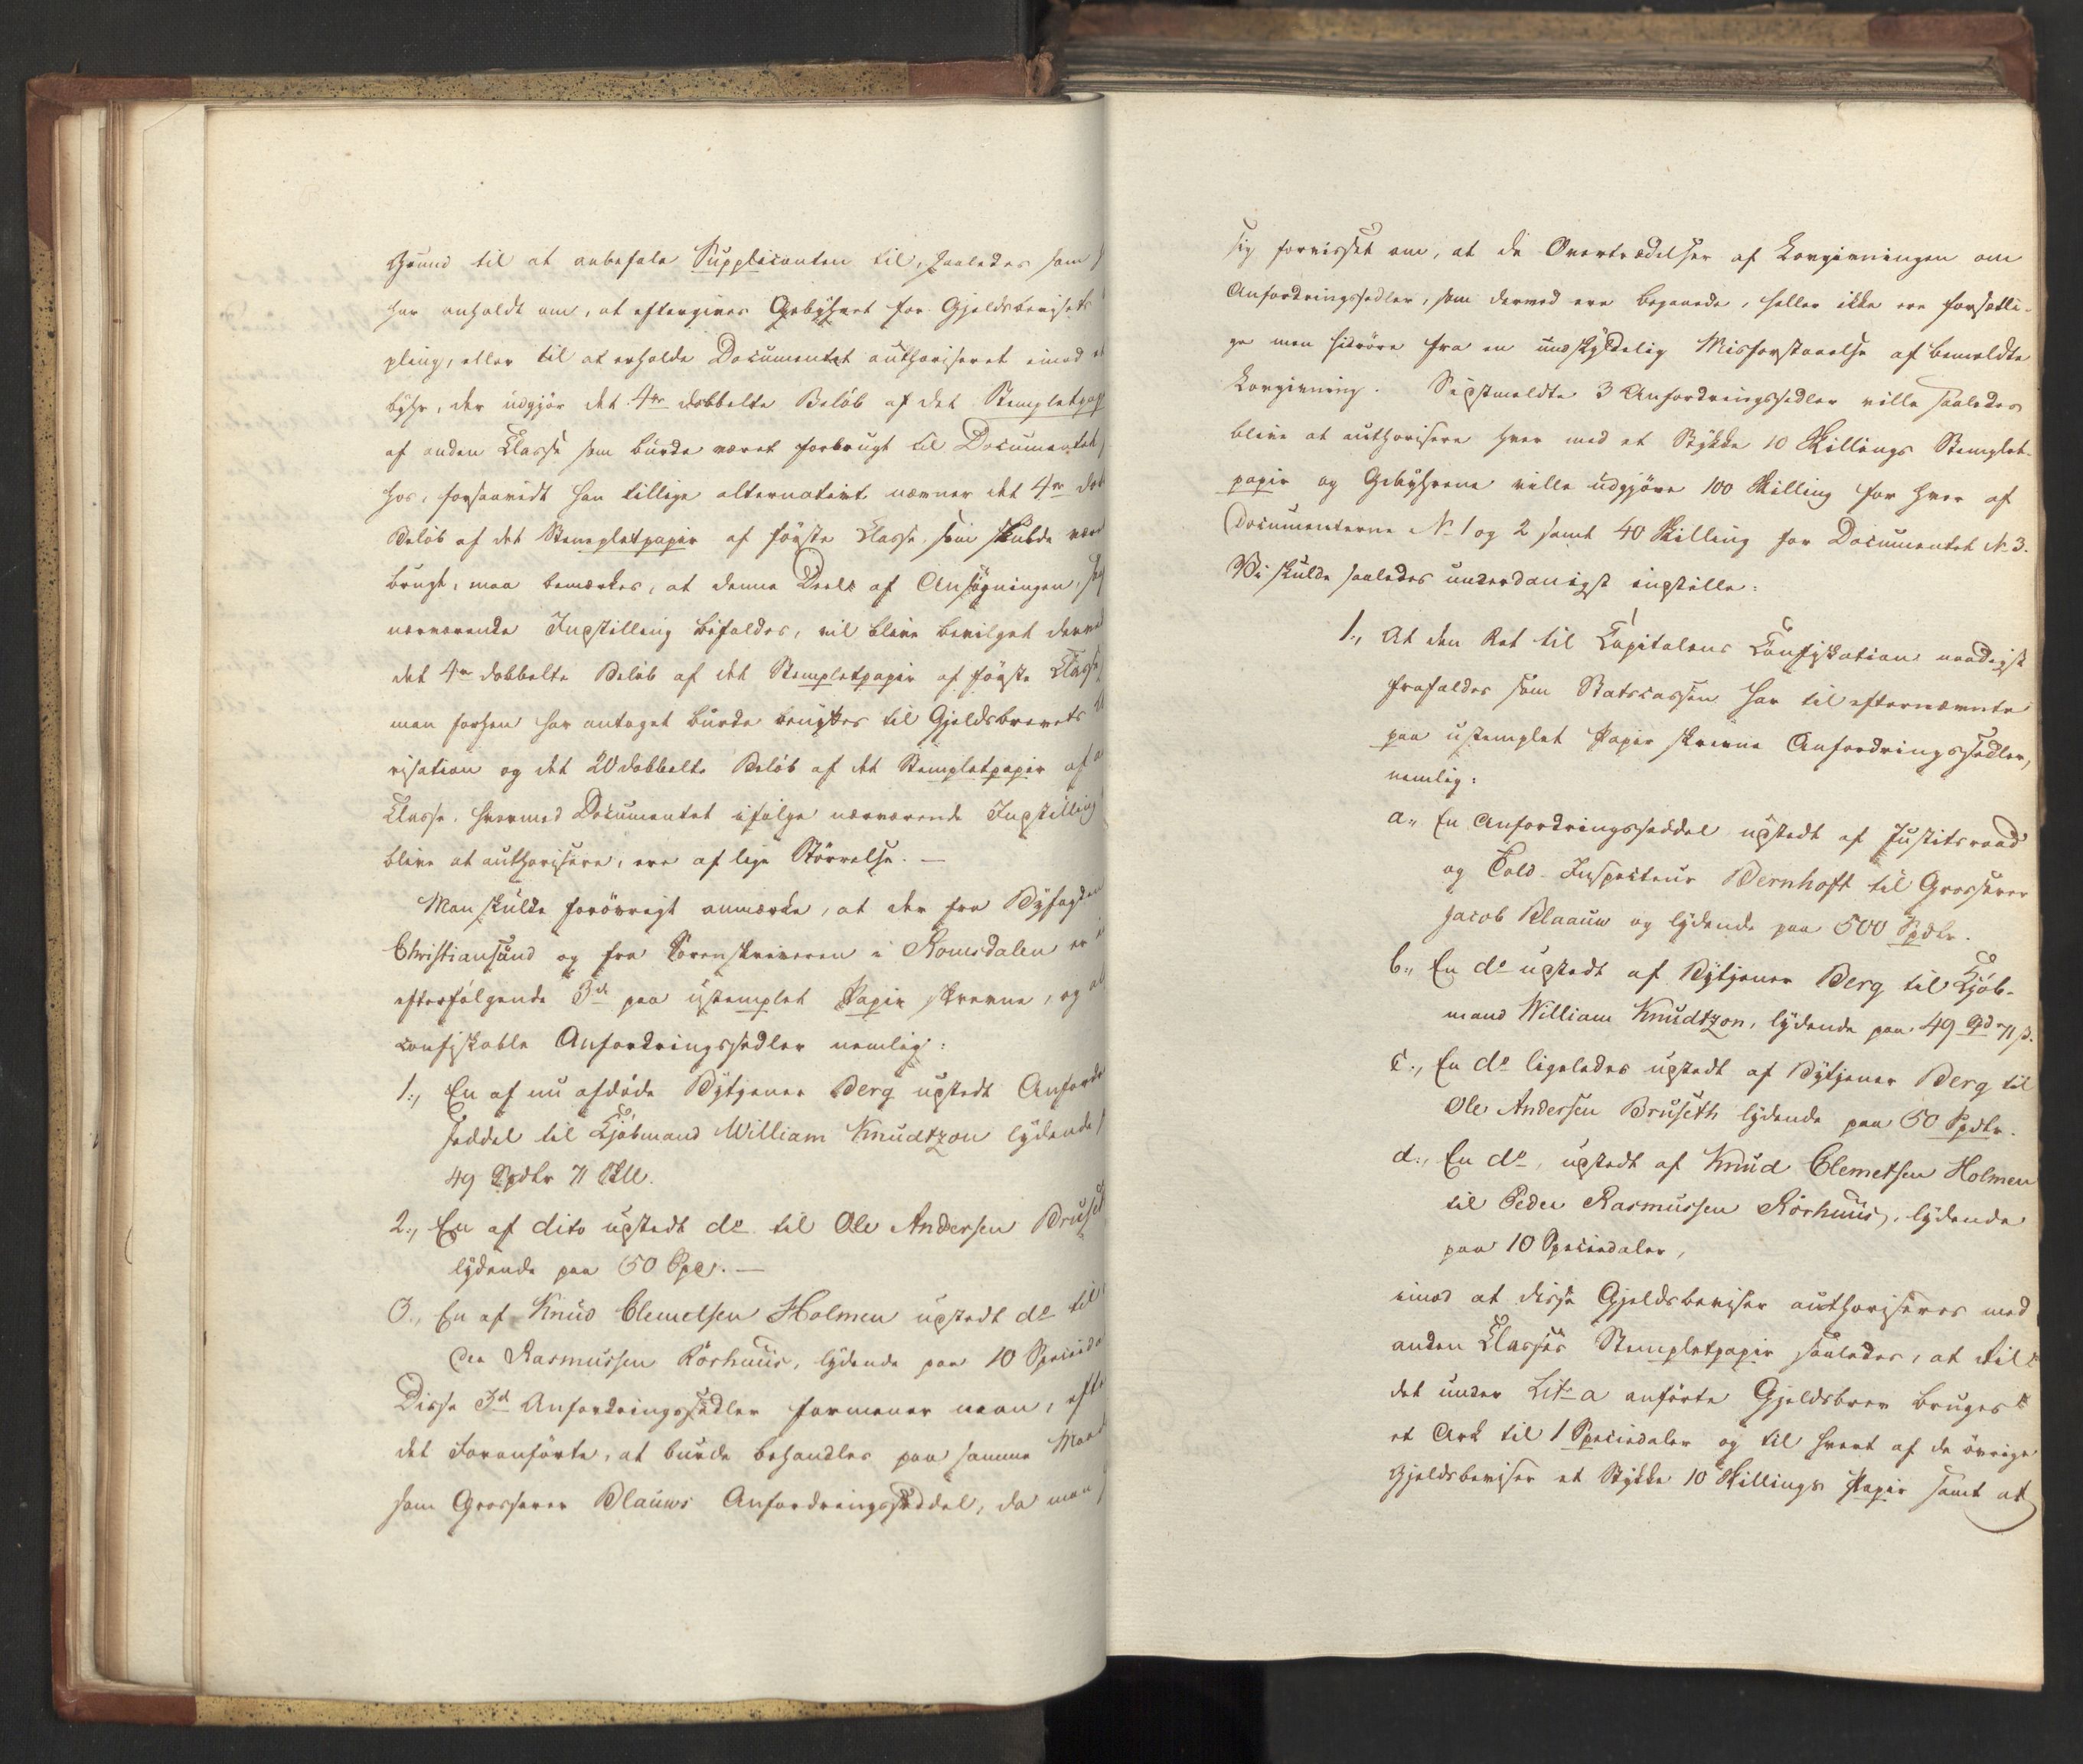 Grund til at anbefale Supplicanten til, saaledes som
har anholdt om, at eftergives Gebyhret for Gjeldsbevisets
pling, eller til at erholde Documentet authoriseret imod et
byhr, der udgjør det 4de dobbelte Beløb af det Stempletpap
af anden Classe som burde været forbrugt til Documentet
hos, forsaavidt han tillige alternativt nævner det 4de dob
Beløb af det Stempletpapir af første Classe, som skulde være
brugt, maa bemærkes, at denne Deel af Ansøgningen,
nærværende Indstilling bifaldes, vil blive bevilget derved
det 4de dobbelte Beløb af det Stempletpapir af første Classe
man forhen har antaget burde bruges til Gjeldsbrevets
risation og det 20 dobbelte Beløb af det Stempletpapir af a
Classe, hvormed Documentet ifølge nærværende Indstilling
blive at authorisere, ere af lige Størrelse. —
Man skulde forøvrigt anmærke, at der fra Byfogden
Christiansund og fra Sorenskriveren i Romsdalen er i
efterfølgende 3de paa ustemplet Papir skrevne, og
confiskable Anfordringssedler nemlig:
1., En af nu afdøde Bytjener Berg udstedt Anfordr
seddel til Kjøbmand William Knudtzon lydende
49 Spdlr 71 Skll.
2., En af dito udstedt do til Ole Andersen Bruset
lydende paa 50 Spd. —
3., En af Knud Clemetsen Holmen udstedt do til
der Rasmussen Rörhuus, lydende paa 10 Specieda
Disse 3de Anfordringssedler formener man, efte
det Foranførte, at burde behandles paa samme Maad
som Grosserer Blauws Anfordringsseddel, da man
sig forvisset om, at de Overtrædelser af Lovgivningen om
Anfordringssedler, som derved ere begaaede, heller ikke ere forsætli-
ge men hidrøre fra en undskyldelig Misforstaaelse af bemeldte
Lovgivning. Sidstmeldte 3 Anfordringssedler ville saaledes
blive at authorisere hver med et Stykke 10 Skillings Stemplet-
papir og Gebyhrene ville udgjøre 100 Skilling for hver af
Documenterne No 1 og 2 samt 40 Skilling for Documentet No 3.
Vi skulde saaledes underdanigst indstille:
1., At den Ret til Capitalens Confiskation naadigst
frafaldes som Statscassen har til efternævnte
paa ustemplet Papir skrevne Anfordringssedler,
nemlig:
a., En Anfordringsseddel udstedt af Justitsraad
og Told-Inspecteur Bernhoft til Grosserer
Jacob Blaauw og lydende paa 500 Spdlr.
b., En do udstedt af Bytjener Berg til Kjøb-
mand William Knudtzon, lydende paa 49 Spdr 71 ß.
c., En do ligeledes udstedt af Bytjener Berg til
Ole Andersen Bruseth lydende paa 50 Spdlr.
d., En do, udstedt af Knud Clemetsen Holmen
til Peder Rasmussen Rörhuus, lydende
paa 10 Speciedaler,
imod at disse Gjeldsbeviser authoriseres med
anden Classes Stempletpapir saaledes, at til
det under Litr a anførte Gjeldsbrev bruges
et Ark til 1 Speciedaler og til hvert af de øvrige
Gjeldsbeviser et Stykke 10 Skillings Papir samt at